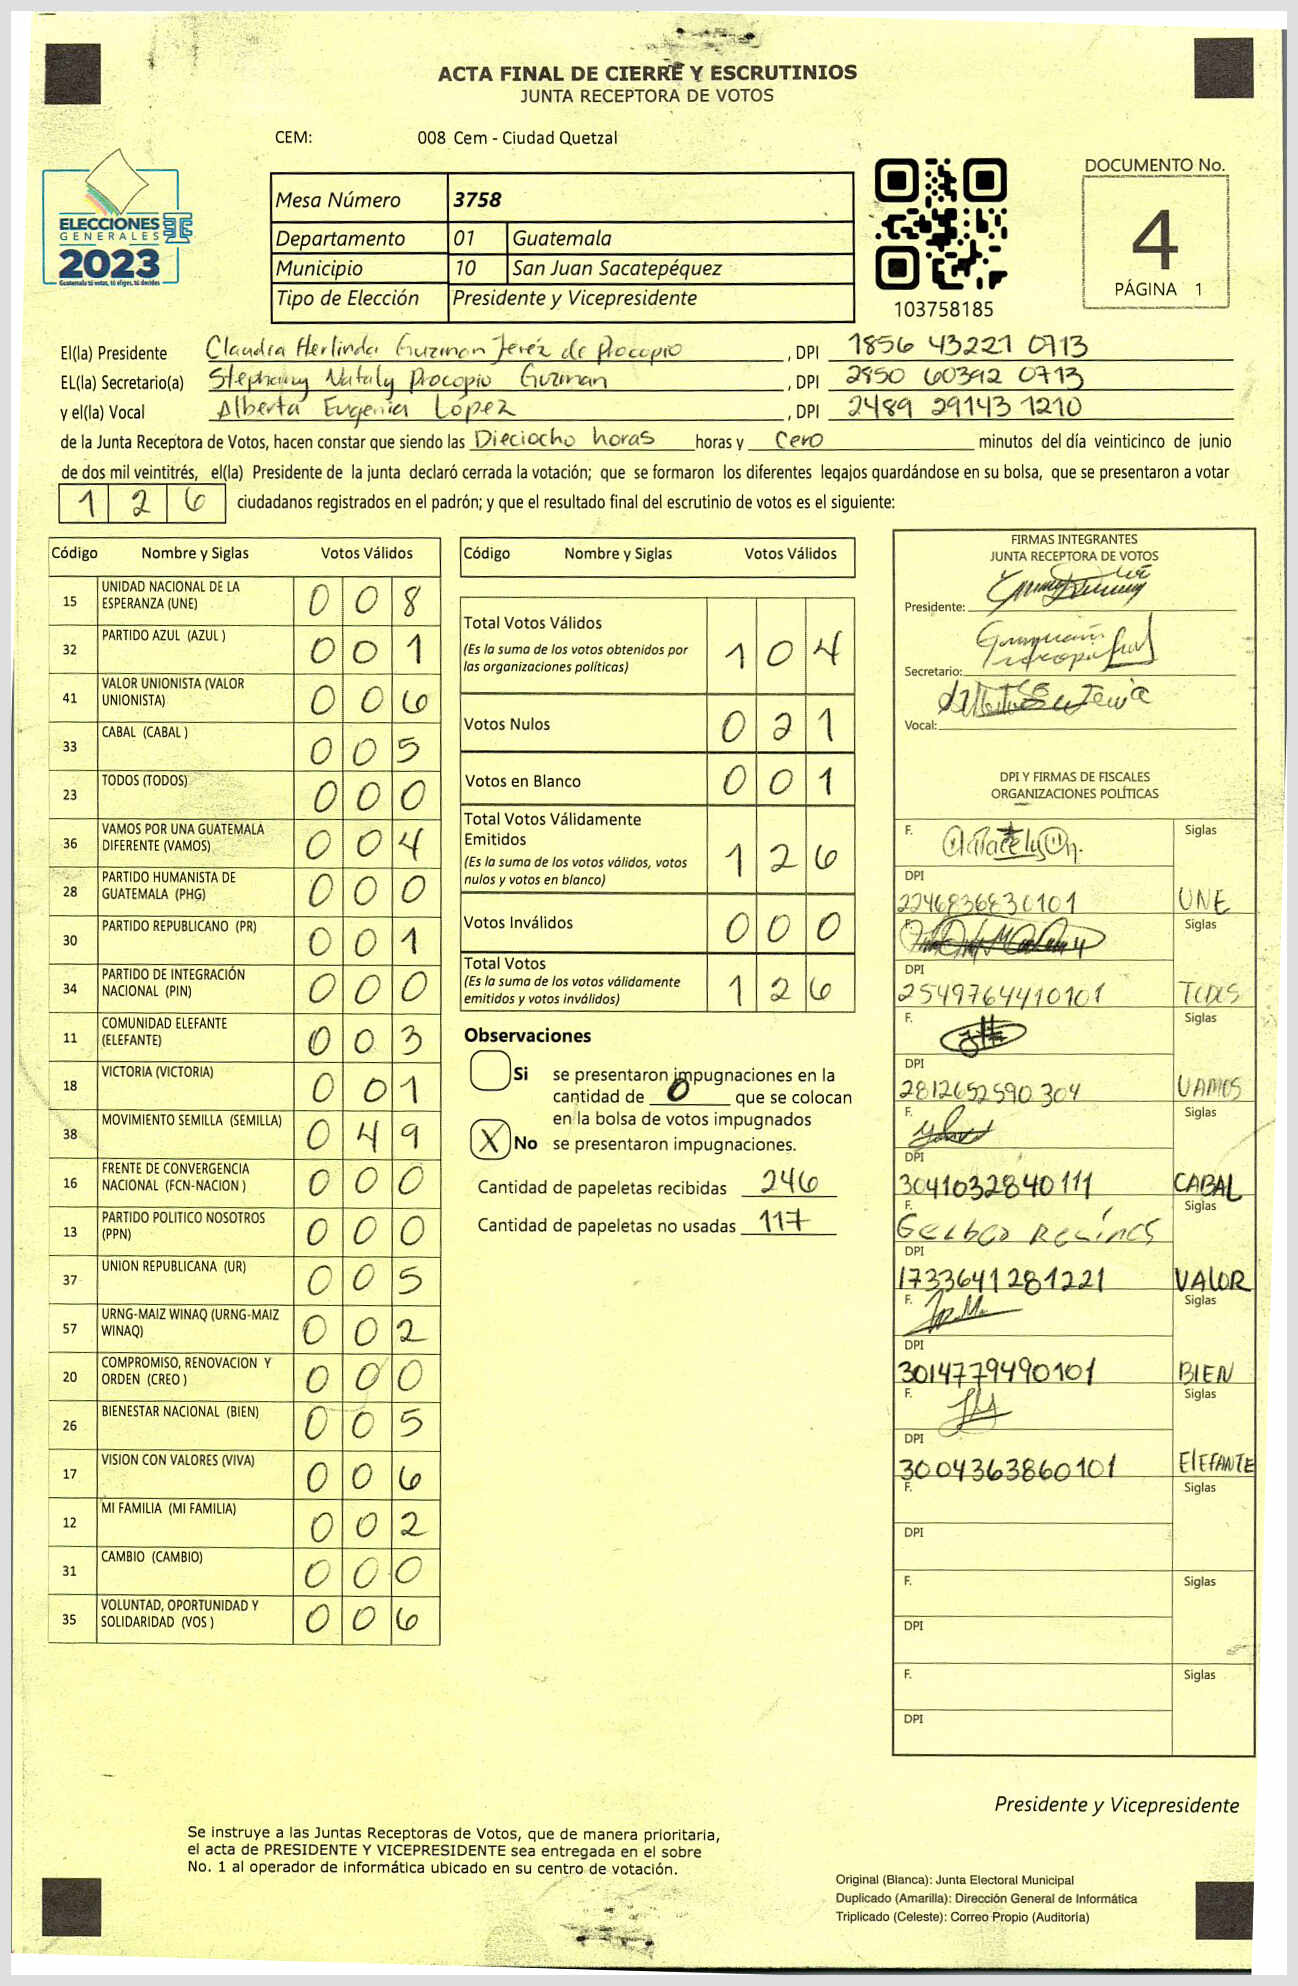 ACTA FINAL DE CIERRE Y ESCRUTINIOS
JUNTA RECEPTORA DE VOTOS
CEM: 008 Cem - Ciudad Quetzal
ELECCIONES
GENERALES
2023
Guatemala tú votas, tú eliges, tú decides
TSE
Mesa Número 3758
Departamento 01 Guatemala
Municipio 10 San Juan Sacatepéquez
Tipo de Elección Presidente y Vicepresidente
103758185
DOCUMENTO No.
4
PÁGINA 1
El(la) Presidente Claudia Herlinda Guzman Jeréz de Procopio, DPI 1856 43221 0713
EL(la) Secretario(a) Stephany Nataly Procopio Guzman, DPI 2850 60392 0713
y el(la) Vocal Alberta Eugenia López, DPI 2489 29143 1210
de la Junta Receptora de Votos, hacen constar que siendo las Dieciocho horas horas y Cero minutos del día veinticinco de junio
de dos mil veintitrés, el(la) Presidente de la junta declaró cerrada la votación; que se formaron los diferentes legajos guardándose en su bolsa, que se presentaron a votar
1 2 6 ciudadanos registrados en el padrón; y que el resultado final del escrutinio de votos es el siguiente:
Código Nombre y Siglas Votos Válidos
15 UNIDAD NACIONAL DE LA ESPERANZA (UNE) 0 0 8
32 PARTIDO AZUL (AZUL ) 0 0 1
41 VALOR UNIONISTA (VALOR UNIONISTA) 0 0 6
33 CABAL (CABAL ) 0 0 5
23 TODOS (TODOS) 0 0 0
36 VAMOS POR UNA GUATEMALA DIFERENTE (VAMOS) 0 0 4
28 PARTIDO HUMANISTA DE GUATEMALA (PHG) 0 0 0
30 PARTIDO REPUBLICANO (PR) 0 0 1
34 PARTIDO DE INTEGRACIÓN NACIONAL (PIN) 0 0 0
11 COMUNIDAD ELEFANTE (ELEFANTE) 0 0 3
18 VICTORIA (VICTORIA) 0 0 1
38 MOVIMIENTO SEMILLA (SEMILLA) 0 4 9
16 FRENTE DE CONVERGENCIA NACIONAL (FCN-NACION ) 0 0 0
13 PARTIDO POLITICO NOSOTROS (PPN) 0 0 0
37 UNION REPUBLICANA (UR) 0 0 5
57 URNG-MAIZ WINAQ (URNG-MAIZ WINAQ) 0 0 2
20 COMPROMISO, RENOVACION Y ORDEN (CREO ) 0 0 0
26 BIENESTAR NACIONAL (BIEN) 0 0 5
17 VISION CON VALORES (VIVA) 0 0 6
12 MI FAMILIA (MI FAMILIA) 0 0 2
31 CAMBIO (CAMBIO) 0 0 0
35 VOLUNTAD, OPORTUNIDAD Y SOLIDARIDAD (VOS ) 0 0 6
Código Nombre y Siglas Votos Válidos
Total Votos Válidos 1 0 4
(Es la suma de los votos obtenidos por
las organizaciones políticas)
Votos Nulos 0 2 1
Votos en Blanco 0 0 1
Total Votos Válidamente
Emitidos 1 2 6
(Es la suma de los votos válidos, votos
nulos y votos en blanco)
Votos Inválidos 0 0 0
Total Votos 1 2 6
(Es la suma de los votos válidamente
emitidos y votos inválidos)
Observaciones
Si se presentaron impugnaciones en la
cantidad de 0 que se colocan
en la bolsa de votos impugnados
X No se presentaron impugnaciones.
Cantidad de papeletas recibidas 246
Cantidad de papeletas no usadas 117
FIRMAS INTEGRANTES
JUNTA RECEPTORA DE VOTOS
Presidente:
Secretario:
Vocal:
DPI Y FIRMAS DE FISCALES
ORGANIZACIONES POLÍTICAS
F. Siglas
DPI
2246836830101 UNE
F. Siglas
DPI
2549764410101 TODOS
F. Siglas
DPI
2812652590304 VAMOS
F. Siglas
DPI
3041032840111 CABAL
F. Siglas
DPI
1733641281221 VALOR
F. Siglas
DPI
3014779490101 BIEN
F. Siglas
DPI
3004363860101 ElEFANTE
F. Siglas
DPI
F. Siglas
DPI
F. Siglas
DPI
Presidente y Vicepresidente
Se instruye a las Juntas Receptoras de Votos, que de manera prioritaria,
el acta de PRESIDENTE Y VICEPRESIDENTE sea entregada en el sobre
No. 1 al operador de informática ubicado en su centro de votación.
Original (Blanca): Junta Electoral Municipal
Duplicado (Amarilla): Dirección General de Informática
Triplicado (Celeste): Correo Propio (Auditoría)